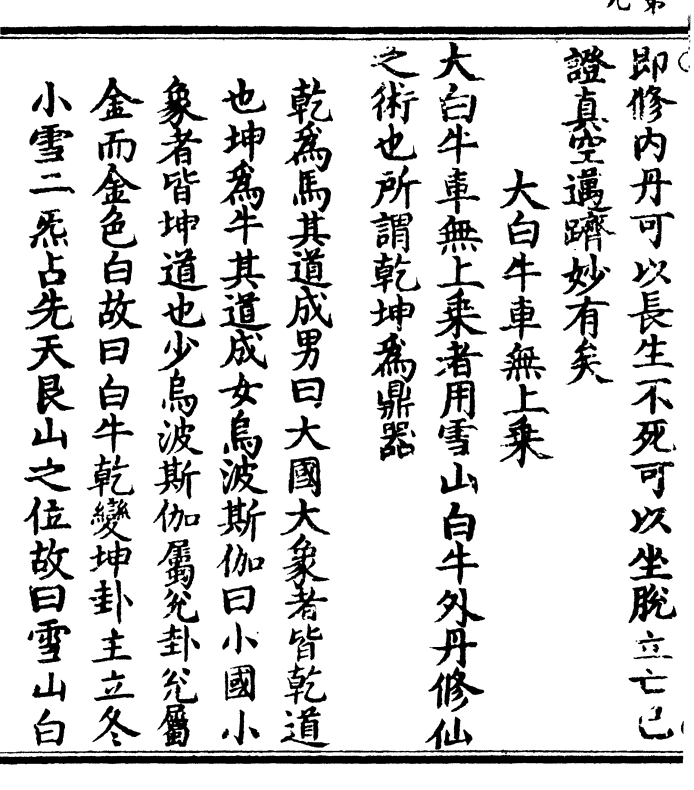 即修內丹可以長生不死可以坐脫立亡已
證真空邁躋妙有矣
大白牛車無上乘
大白牛車無上乘者用雪山白牛外丹修仙
之術也所謂乾坤為鼎器
乾為馬其道成男曰大國大象者皆乾道
也坤為牛其道成女烏波斯伽曰小國小
象者皆坤道也少烏波斯伽屬兊卦兊屬
金而金色白故曰白牛乾變坤卦主立冬
小雪二炁占先天艮山之位故曰雪山白